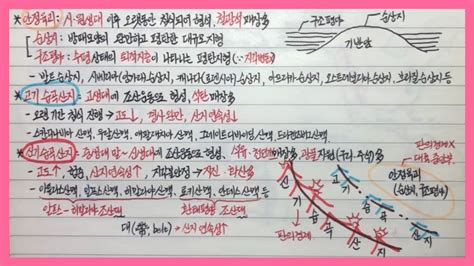 * 안정육괴 : 시·원생대 이후 오랫동안 침식되어 형성, 철광석 매장多
순상지 : 방패모양의 완만하고 평탄한 대규모지형
구조평야 : 수평상태의 퇴적지층이 나타나는 평탄한지형 (∵지각안정)
- 발트순상지, 시베리아(앙가라)순상지, 캐나다(로렌시아)순상지, 아프리카순상지, 오스트레일리아순상지, 브라질순상지 등
구조평야 순상지
기반암
* 고기습곡산지 : 고생대에 조산운동으로 형성, 석탄 매장多
- 오랜 기간 침식 진행 → 고도↓, 경사 완만, 산지연속성↓
- 스칸디나비아 산맥, 우랄산맥, 애팔래치아 산맥, 그레이트디바이딩산맥, 드라켄즈버그산맥
* 신기습곡산지 : 중생대 말~신생대에 조산운동으로 형성, 석유·천연가스 매장多, 광물자원(구리·주석)
- 고도↑, 험준, 산지연속성↑, 지각불안정 → 지진·화산多
- 이풀대산맥, 알프스산맥, 히말라야산맥, 로키산맥, 안데스산맥 등
알프스-히말라야 조산대 환태평양 조산대
대(帶, belt) → 산지 연속성↑
판의경계 X
대륙 중앙부
안정육괴
(순상지, 구조평야)
고기습곡산지
신기습곡산지
판의경계